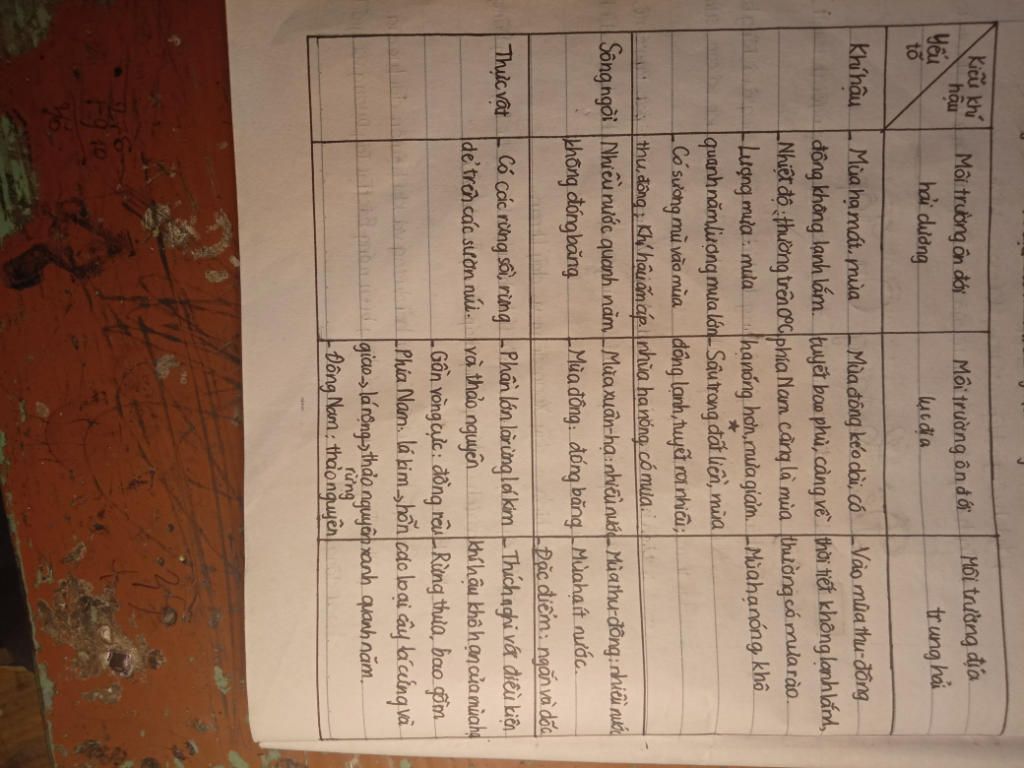 Kiểu khí hậu
Yếu tố
Môi trường ôn đới
hải dương
Môi trường ôn đới
lục địa
Môi trường địa
trung hải
Khí hậu
- Mùa hạ mát, mùa
đông không lạnh lắm
- Nhiệt độ: thường trên 0°C
- Lượng mưa: mưa
quanh năm lượng mưa lớn
- Có sương mù vào mùa
thu, đông; khí hậu ấm áp.
- Mùa đông kéo dài, có
tuyết bao phủ, càng về
phía Nam càng là mùa
hạ nóng hơn, mưa giảm.
- Sâu trong đất liền, mùa
đông lạnh, tuyết rơi nhiều;
mùa hạ nóng, có mưa.
- Vào mùa thu-đông
thời tiết không lạnh lắm,
thường có mưa rào.
- Mùa hạ nóng, khô
Sông ngòi
Nhiều nước quanh năm
không đóng băng
- Mùa xuân-hạ: nhiều nước
- Mùa đông: đóng băng
- Mùa thu-đông: nhiều nước
- Mùa hạ ít nước.
- Đặc điểm: ngắn và dốc
Thực vật
- Có các rừng sồi, rừng
dẻ trên các sườn núi.
- Phần lớn là rừng lá kim
và thảo nguyên
- Gần vòng cực: đồng rêu
- Phía Nam: lá kim → hỗn
giao → lá rộng → thảo nguyên
rừng
- Đông Nam: thảo nguyên
- Thích nghi với điều kiện
khí hậu khô hạn của mùa hạ
- Rừng thưa, bao gồm
các loại cây lá cứng và
xanh quanh năm.